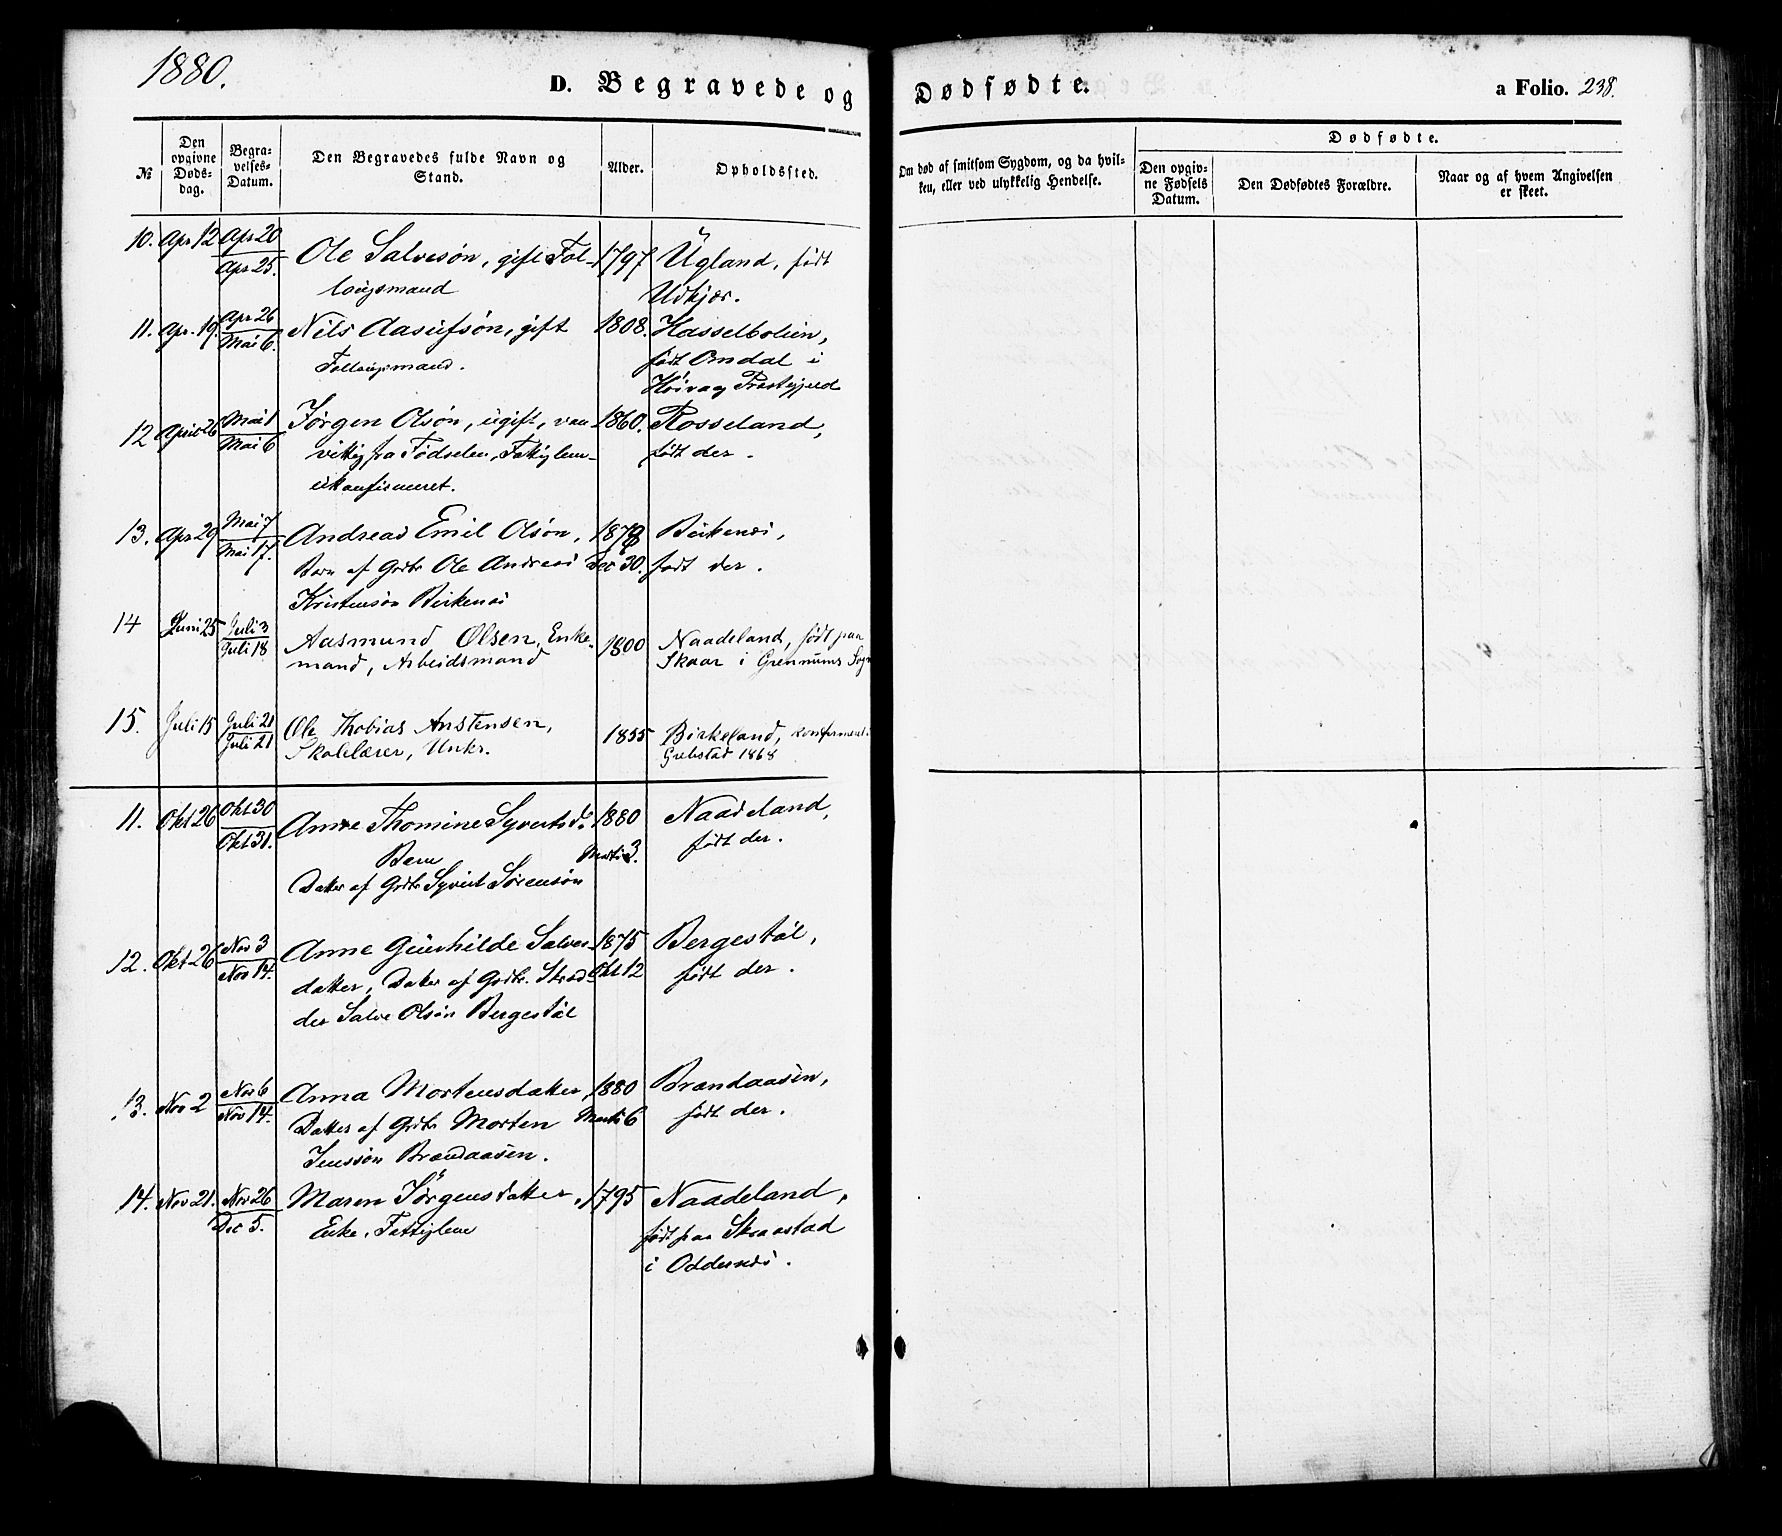 1880.
D. Begravede og Dødfødte. a Folio. 238.
№
Den opgivne Døds-dag.
Begra-velses-Datum.
Den Begravedes fulde Navn og Stand.
Alder.
Opholdssted.
Om død af smitsom Sygdom, og da hvil-
ken, eller ved ulykkelig Hendelse.
Dødfødte.
Den opgiv-
ne Fødsels
Datum.
Den Dødfødtes Forældre.
Naar og af hvem Angivelsen
er skeet.
10. Apr 12 Apr 20 Apr 25. Ole Salvesøn, gift Fol- 1797 Ugland, født
laugsmand Udkjær.
11. Apr. 19 Apr 26 Mai 6. Nils Aasulfsøn, gift 1808. Hasselbolien,
Follaugsmand. født Omdal i
Høivag Præstegjeld
12 April 26 Mai 1 Mai 6 Jørgen Olsøn, ugift, van- 1860. Rosseland,
vittig fra Fødselen, Fattiglem- født der.
ukonfirmeret.
13. Apr 29 Mai 7 Mai 17. Andreas Emil Olsøn, 1878 Birkenes,
Barn af Grdbr Ole Andreas Dec 30. født der.
Kristensøn Birkenes
14 Juni 25 Juli 3 Juli 18 Aasmund Olsen, Enke- 1800 Naadeland, født paa
mand, Arbeidsmand Skaar i Grennums Sogn
15. Juli 15 Juli 21 Juli 21 Ole Thobias Anstensen, 1855 Birkeland, konfirmeret i
Skolelærer, Unkr. Grebstad 1868
11. Okt 26 Okt 30 Okt 31. Anne Thomine Syvertsd. 1880 Naadeland,
Barn Marts 3. født der.
Datter af Grdbr Syvert Sørensøn
12. Okt 26 Nov 3 Nov 14. Anne Gunhilde Salves- 1875 Bergestøl,
datter, Datter af Grdbr. Okt 12 født der.
der Salve Olsøn Bergestøl
13. Nov 2 Nov 6 Nov 14. Anna Mortensdatter, 1880 Brandaasen,
Datter af Grdbr Morten Marts 6 født der.
Jenssøn Brandaasen.
14. Nov 21. Nov 26 Dec 5. Maren Jørgensdatter, 1795 Naadeland,
Enke, Fattiglem født paa Skraastad
i Oddernes.